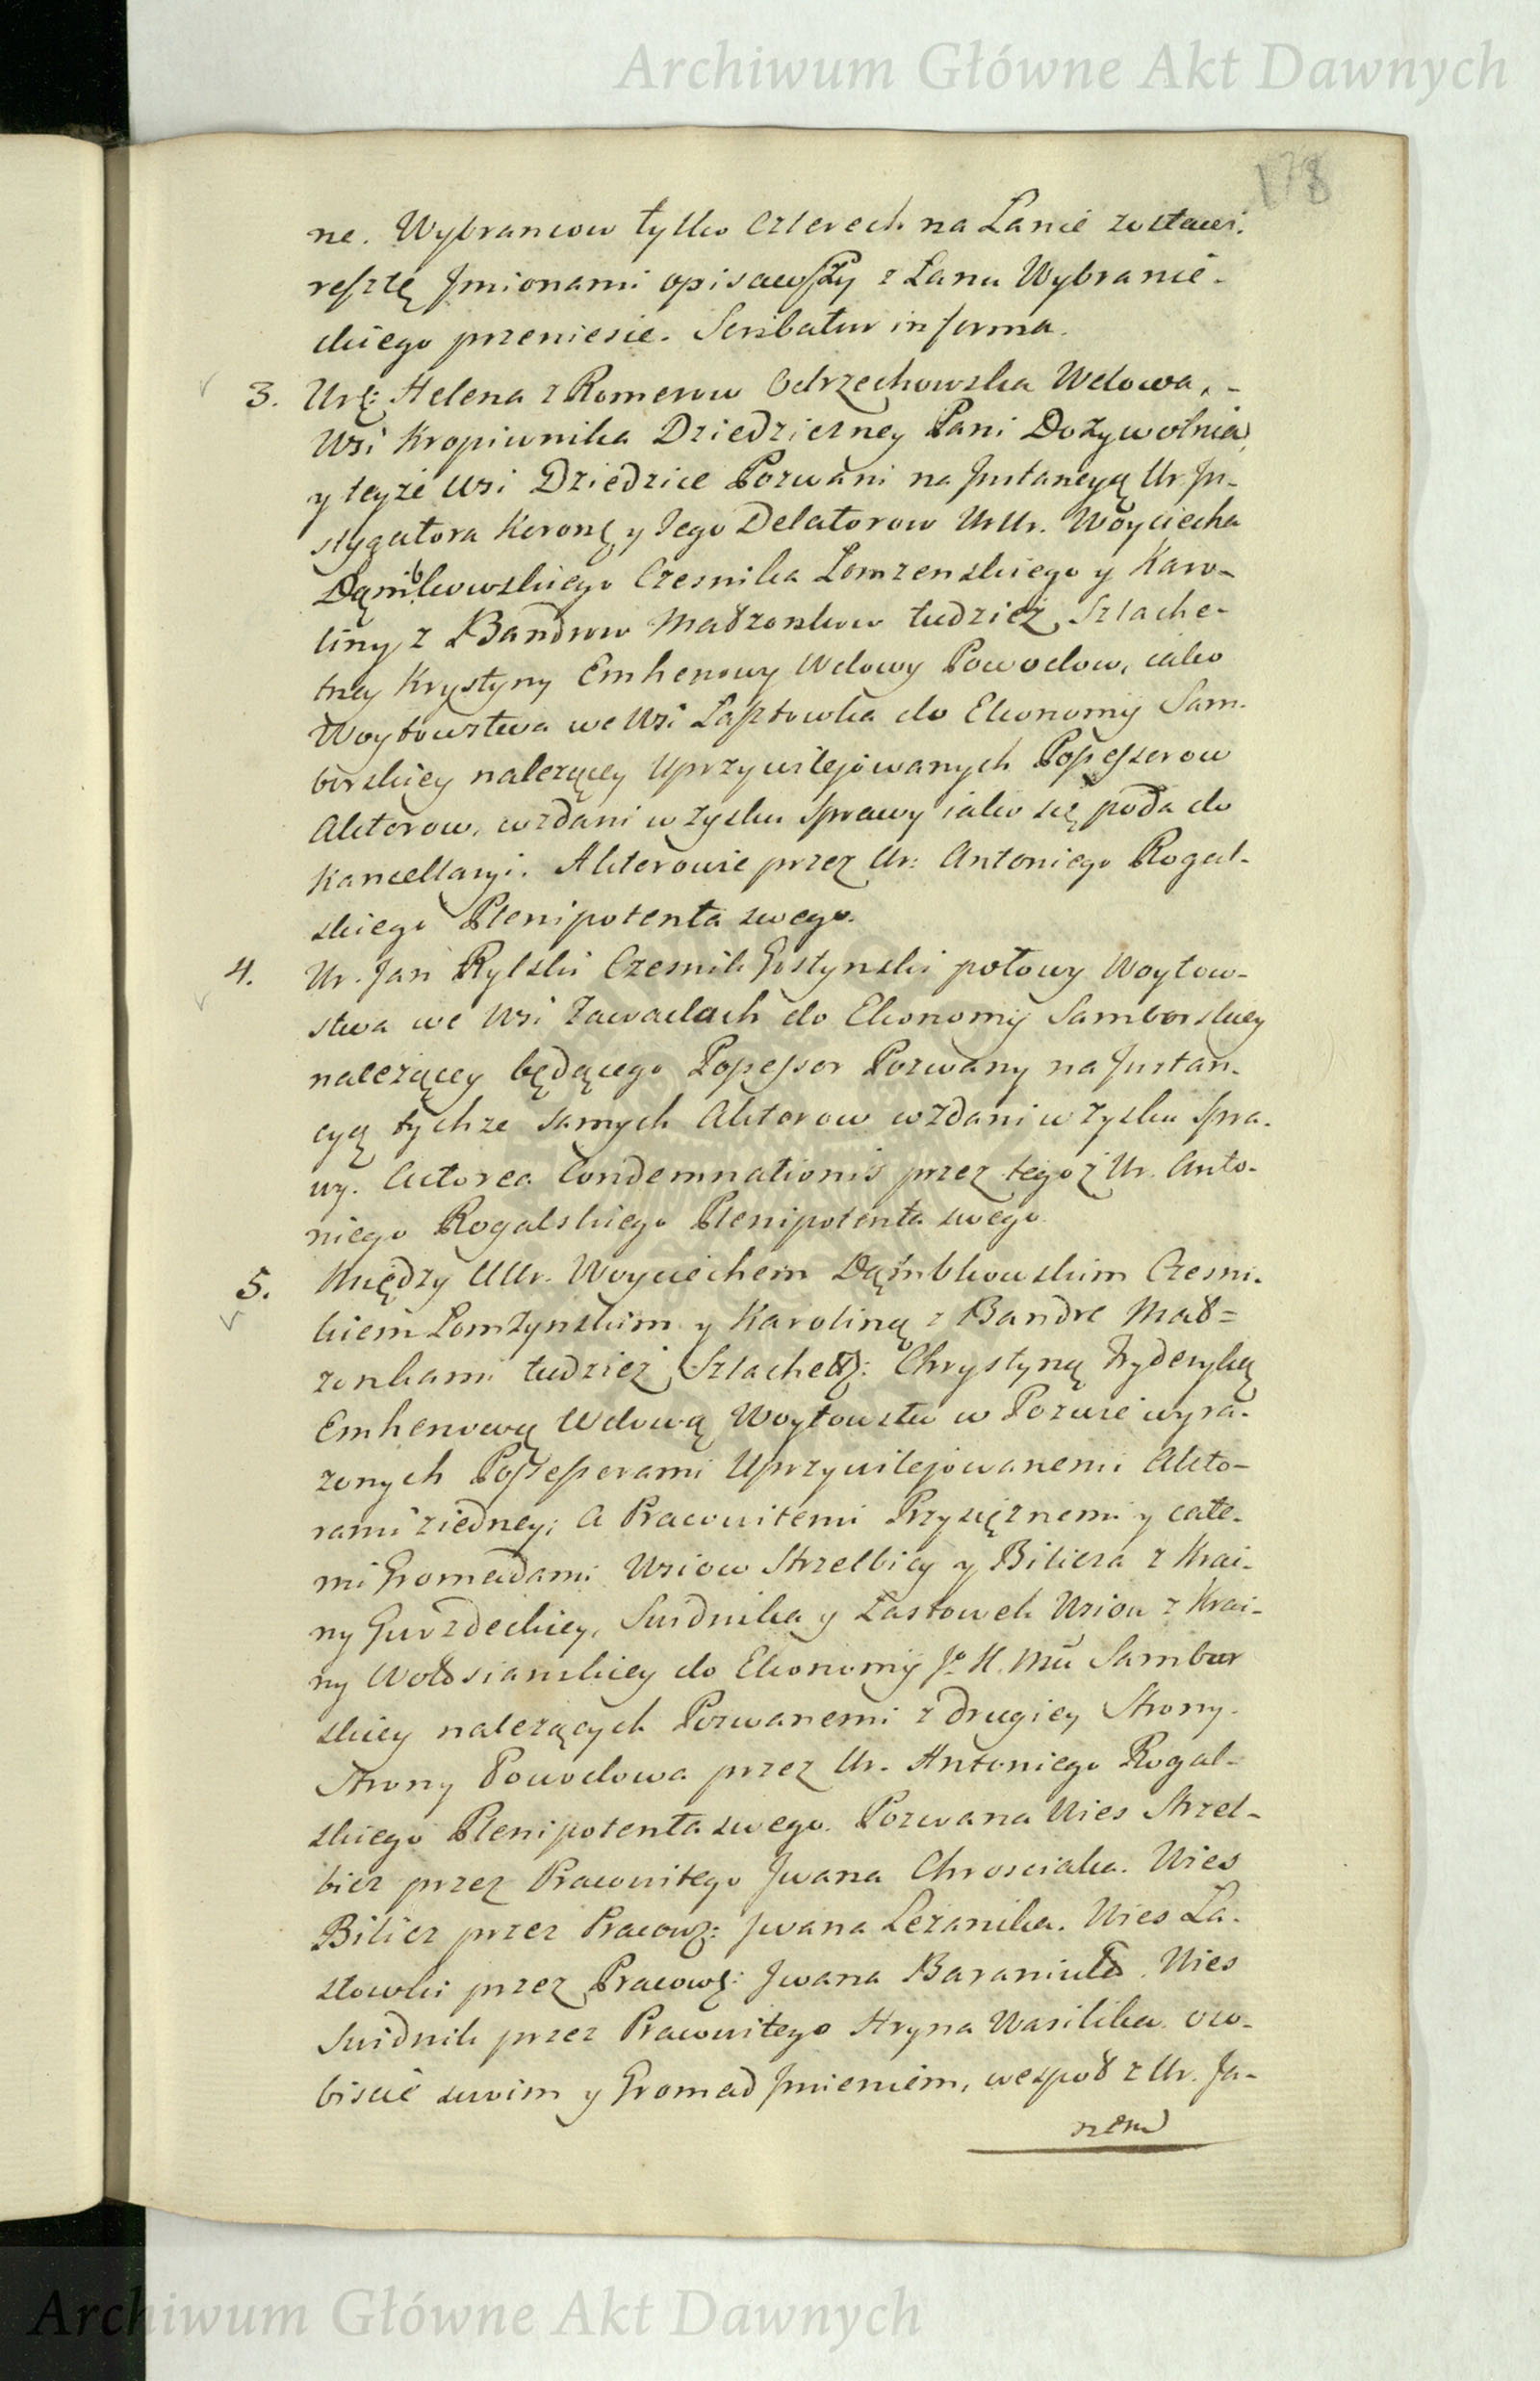 Archiwum Główne Akt Dawnych
178
ne. Wybrancow tylko czterech na Łanie zostawi.
resztę Jmionami opisawszy z Łanu Wybranie-
ckiego przeniesie. Scribatur in forma.
3. Urę: Helena z Romerow Odrzechowska Wdowa, -
Wsi Kropiwnika Dziedziczney Pani Dożywotnia,
y teyże Wsi Dziedzice Pozwani na Jnstancyą Ur. Jn-
stygatora Koronę y Jego Delatorow UrUr. Woyciecha
Dąmbkowskiego Czesnika Łomzenskiego y Karo-
liny z Bandrow Małzonkow tudzież Szlache-
tney Krystyny Emhenowy Wdowy Powodow, iako
Woytowstwa we Wsi Łasztowka do Ekonomij Sam-
borskiey należącey Uprzywilejowanych Possessorow
Aktorow, wzdani w zysku Sprawy iako się poda do
Kancellaryi. Aktorowie przez Ur: Antoniego Rogal-
skiego Plenipotenta swego.
4. Ur. Jan Rylski Czesnik Gostynski połowy Woytow-
stwa we Wsi Zawadach do Ekonomij Samborskiey
należącey będącego Possessor Pozwany na Jnstan-
cyą tychże samych Aktorow wzdani w zysku Spra-
wy. Actorea Condemnationis przez tegoż Ur. Anto-
niego Rogalskiego Plenipotenta swego.
5. Między UUr. Woyciechem Dąmbkowskim Czesni-
kiem Łomżynskim y Karoliną z Bandre Mał=
zonkami tudzież Szlachetę: Chrystyną Frydrykę
Emhenową Wdową Woytowstw w Pozwie wyra-
zonych Possessorami Uprzywilejowanemi Akto-
rami z iedney; A Pracowitemi Przysiężnemi y całe-
mi Gromadami Wsiow Strzelbicy y Bilicza z Krai-
ny Gwozdeckiey, Swidnika y Łastowek Wsiow z Krai-
ny Wołosianskiey do Ekonomij Jo K. Mci Sambor
skiey należących Pozwanemi z drugiey Strony.
Strony Powodowa przez Ur. Antoniego Rogal-
skiego Plenipotenta swego. Pozwana Wies Strzel-
bicz przez Pracowitego Jwana Chrosciaka. Wies
Bilicz przez Pracowę: Jwana Lezanika. Wies Ła-
stowki przez Pracowę: Jwana Baraniuka. Wies
Swidnik przez Pracowitego Hryna Wasilika oso-
biscie swoim y Gromad Jmieniem, wespoł z Ur. Ja-
nem
Archiwum Główne Akt Dawnych